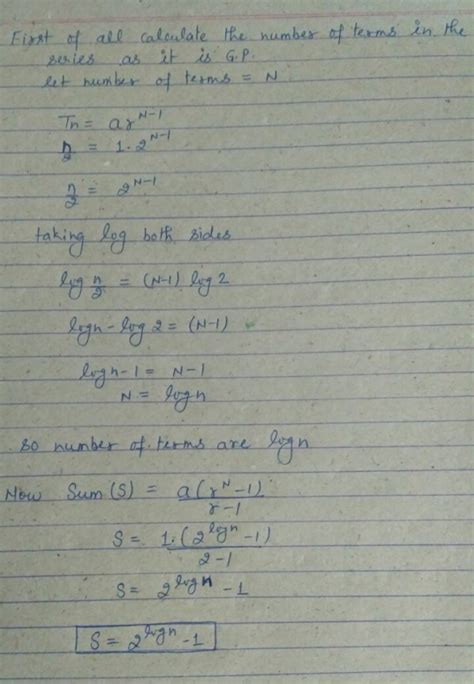 First of all calculate the number of terms in the
series as it is G.P.
let number of terms = N
Tn = ar^{N-1}
n/2 = 1.2^{N-1}
n/2 = 2^{N-1}
taking log both sides
log n/2 = (N-1) log 2
logn - log 2 = (N-1)
logn - 1 = N-1
N = logn
so number of terms are logn
Now Sum (S) = a(r^N - 1)/r-1
S = 1.(2^{logn} - 1)/2-1
S = 2^{logn} - 1
S = 2^{logn} - 1